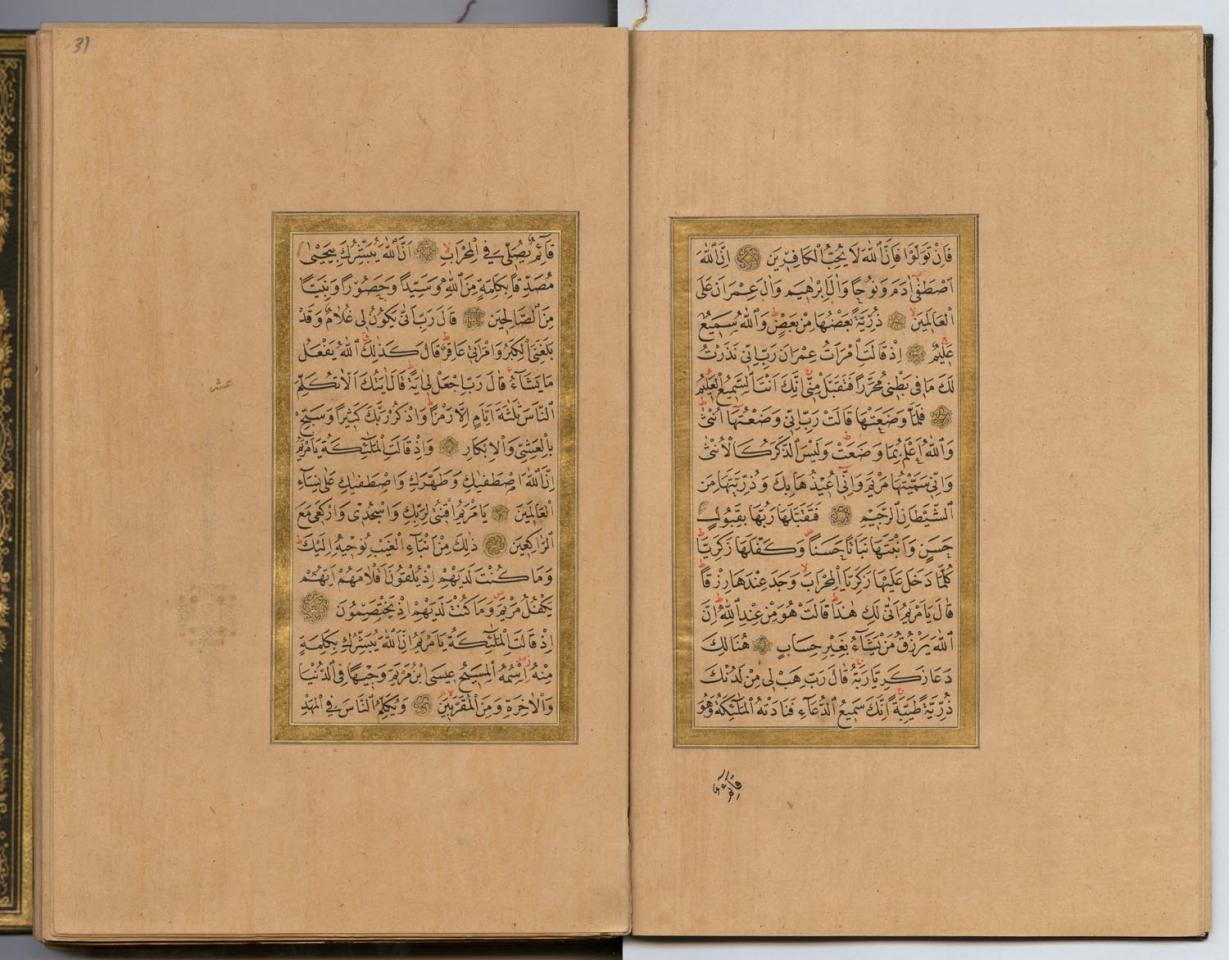 فَاِنْ تَوَلَّوْا فَاِنَّ اللّٰهَ لَا يُحِبُّ الْكَافِرٖينَ اِنَّ اللّٰهَ
اصْطَفٰٓى اٰدَمَ وَنُوحًا وَاٰلَ اِبْرٰهٖيمَ وَاٰلَ عِمْرَانَ عَلَى
الْعَالَمٖينَ ذُرِّيَّةً بَعْضُهَا مِنْ بَعْضٍ وَاللّٰهُ سَمٖيعٌ
عَلٖيمٌ اِذْ قَالَتِ امْرَاَتُ عِمْرَانَ رَبِّ اِنّٖي نَذَرْتُ
لَكَ مَا فٖي بَطْنٖي مُحَرَّرًا فَتَقَبَّلْ مِنّٖي اِنَّكَ اَنْتَ السَّمٖيعُ الْعَلٖيمُ
فَلَمَّا وَضَعَتْهَا قَالَتْ رَبِّ اِنّٖي وَضَعْتُهَٓا اُنْثٰى
وَاللّٰهُ اَعْلَمُ بِمَا وَضَعَتْ وَلَيْسَ الذَّكَرُ كَالْاُنْثٰى
وَاِنّٖي سَمَّيْتُهَا مَرْيَمَ وَاِنّٖٓي اُعٖيذُهَا بِكَ وَذُرِّيَّتَهَا مِنَ
الشَّيْطَانِ الرَّجٖيمِ فَتَقَبَّلَهَا رَبُّهَا بِقَبُولٍ
حَسَنٍ وَاَنْبَتَهَا نَبَاتًا حَسَنًا وَكَفَّلَهَا زَكَرِيَّا
كُلَّمَا دَخَلَ عَلَيْهَا زَكَرِيَّا الْمِحْرَابَ وَجَدَ عِنْدَهَا رِزْقًا
قَالَ يَا مَرْيَمُ اَنّٰى لَكِ هٰذَا قَالَتْ هُوَ مِنْ عِنْدِ اللّٰهِ اِنَّ
اللّٰهَ يَرْزُقُ مَنْ يَشَٓاءُ بِغَيْرِ حِسَابٍ هُنَالِكَ
دَعَا زَكَرِيَّا رَبَّهُ قَالَ رَبِّ هَبْ لٖي مِنْ لَدُنْكَ
ذُرِّيَّةً طَيِّبَةً اِنَّكَ سَمٖيعُ الدُّعَٓاءِ فَنَادَتْهُ الْمَلٰٓئِكَةُ وَهُوَ
قَٓائِمٌ
31
قَٓائِمٌ يُصَلّٖي فِي الْمِحْرَابِ اَنَّ اللّٰهَ يُبَشِّرُكَ بِيَحْيٰى
مُصَدِّقًا بِكَلِمَةٍ مِنَ اللّٰهِ وَسَيِّدًا وَحَصُورًا وَنَبِيًّا
مِنَ الصَّالِحٖينَ قَالَ رَبِّ اَنّٰى يَكُونُ لٖي غُلَامٌ وَقَدْ
بَلَغَنِيَ الْكِبَرُ وَامْرَاَتٖي عَاقِرٌ قَالَ كَذٰلِكَ اللّٰهُ يَفْعَلُ
مَا يَشَٓاءُ قَالَ رَبِّ اجْعَلْ لٖٓي اٰيَةً قَالَ اٰيَتُكَ اَلَّا تُكَلِّمَ
النَّاسَ ثَلٰثَةَ اَيَّامٍ اِلَّا رَمْزًا وَاذْكُرْ رَبَّكَ كَثٖيرًا وَسَبِّحْ
بِالْعَشِيِّ وَالْاِبْكَارِ وَاِذْ قَالَتِ الْمَلٰٓئِكَةُ يَا مَرْيَمُ
اِنَّ اللّٰهَ اصْطَفٰيكِ وَطَهَّرَكِ وَاصْطَفٰيكِ عَلٰى نِسَٓاءِ
الْعَالَمٖينَ يَا مَرْيَمُ اقْنُتٖي لِرَبِّكِ وَاسْجُدٖي وَارْكَعٖي مَعَ
الرَّاكِعٖينَ ذٰلِكَ مِنْ اَنْبَٓاءِ الْغَيْبِ نُوحٖيهِ اِلَيْكَ
وَمَا كُنْتَ لَدَيْهِمْ اِذْ يُلْقُونَ اَقْلَامَهُمْ اَيُّهُمْ
يَكْفُلُ مَرْيَمَ وَمَا كُنْتَ لَدَيْهِمْ اِذْ يَخْتَصِمُونَ
اِذْ قَالَتِ الْمَلٰٓئِكَةُ يَا مَرْيَمُ اِنَّ اللّٰهَ يُبَشِّرُكِ بِكَلِمَةٍ
مِنْهُ اسْمُهُ الْمَسٖيحُ عٖيسَى ابْنُ مَرْيَمَ وَجٖيهًا فِي الدُّنْيَا
وَالْاٰخِرَةِ وَمِنَ الْمُقَرَّبٖينَ وَيُكَلِّمُ النَّاسَ فِي الْمَهْدِ
عشر